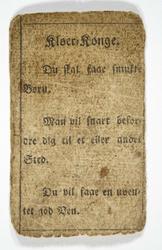 Kløer-Konge.
Du skal faae smukke
Børn.
Man vil snart befor-
dre dig til et eller andet
Sted.
Du vil faae en uven-
tet god Ven.